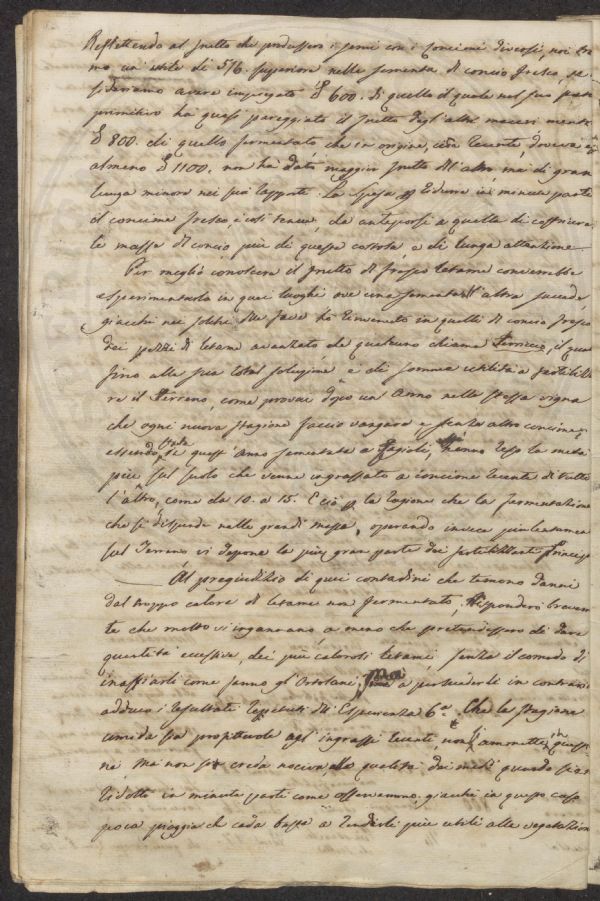 Riflettendo al frutto che produssero i semi con i Concimi diversi, noi
mo un utile di 5/6. superiore nella sementa di concio fresco, se
sideriamo avere impiegato £ 600. di quello il quale nel suo stato
primitivo ha quasi pareggiato il frutto degl'altri maceri mentre
£ 800. di quello fermentato che in origine, cioè recente, doveva
almeno £ 1100. non ha dato maggior frutto dell'altro, ma di gran
lunga minore nei suoi rapporti. La spesa p ridurre in minute parti
il concime fresco, è così tenue, da anteporsi a quella di
le masse di concio, più di questa costosa, e di lunga attenzione
Per meglio conoscere il frutto di fresco letame converrebbe
esperimentarlo in quei luoghi ove una sementa all'altra succede,
giacchè nei solchi delle fave ho rinvenuto in quelli di concio fresco
dei pezzi di letame avanzato da qualcuno chiama Terriccio, il quale
fino alla sua total soluzione è di somma utilità a fertilizza
re il Terreno, come provai dopo un Anno nella stessa vigna
che ogni nuova stagione faccio vangare e senza altro concime
essendo stata quest'anno sementata a Fagioli, hanno reso la metà
più sul suolo che venne ingrassato a concime recente di tutto
l'altro, come da 10. a 15. E ciò p la ragione che la fermentazione
che si disperde nelle grandi masse, operando invece più lentamente
sul Terreno vi depone la più gran parte dei fertilizzanti Principj
Al pregiudizio di quei contadini che temono danni
dal troppo calore di letame non fermentato, risponderò brevemen
te che molto s'ingannano, a meno che pretendessero di dare
quantità eccessive, dei più calorosi letami, senza il comodo di
inaffiarli come fanno gl'Ortolani, ma a persuaderli in contrario
adduco i resultati ripetuti dell'Esperienza 6a. Che la stagione
umida sia propizievole agl'ingrassi recenti, non si ammette in questio
ne, ma non si creda nociva alla qualità dei medi quando sian
ridotti in minute parti come osservammo, giacchè in questo caso
poca pioggia che cada basta a renderli più utili alla vegetazione